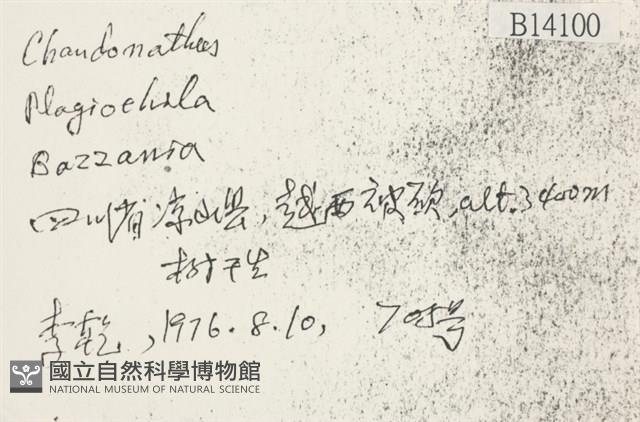 B14100
Chandonathus
Plagiochila
Bazzania
四川省凉山县,越西 alt.3400m
树干生
李乾,1976.8.10, 705号
國立自然科學博物館
NATIONAL MUSEUM OF NATURAL SCIENCE